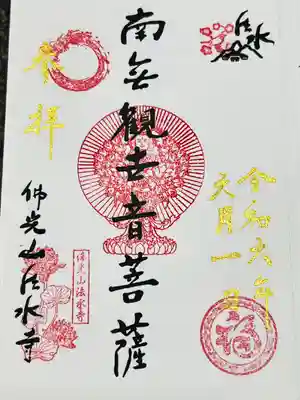 法水
令和六年
六月一日
南無觀世音菩薩
奉拜
佛光山法水寺
佛光山法水寺
福